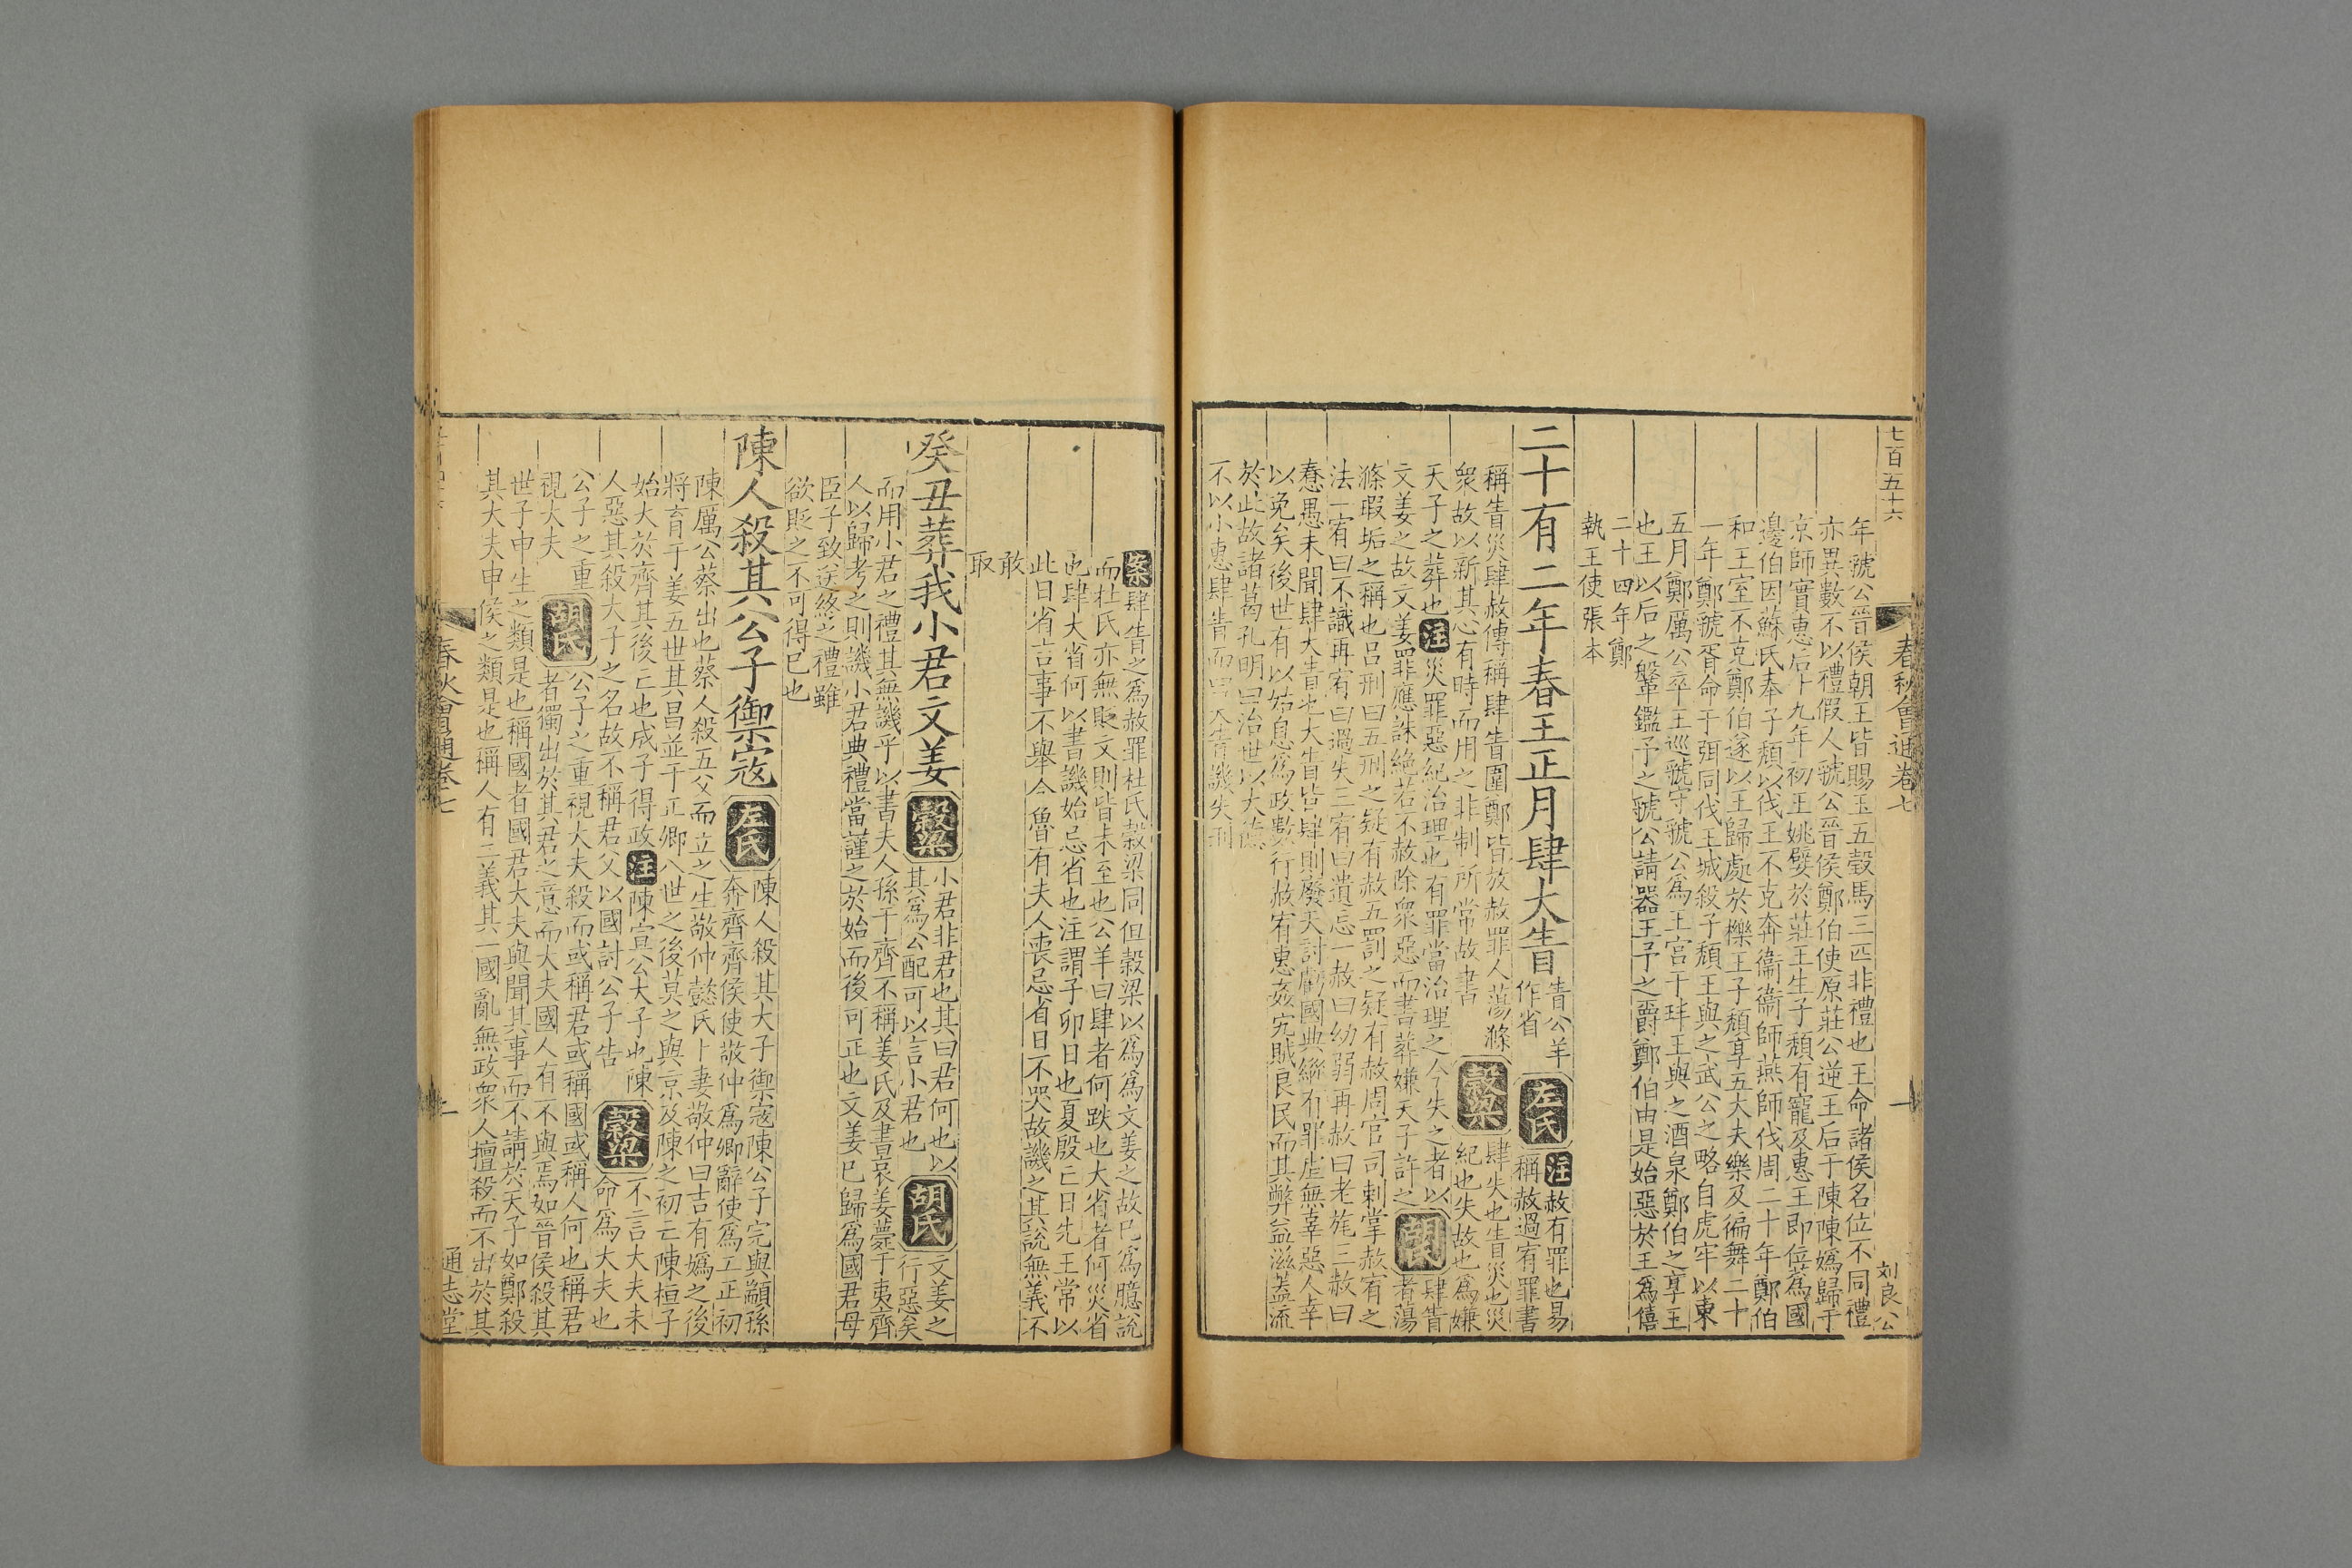 七百五十六
春秋會通卷七
一
刘良公
年虢公晉侯朝王皆賜玉五瑴馬三匹非禮也王命諸侯名位不同禮
亦異數不以禮假人虢公晉侯鄭伯使原莊公逆王后于陳陳嬀歸于
京師實惠后十九年初王姚嬖於莊王生子頽有寵及惠王即位蒍國
邊伯因蘇氏奉子頽以伐王不克奔衞衞師燕師伐周二十年鄭伯
和王室不克鄭伯遂以王歸處於櫟王子頽享五大夫樂及徧舞二十
一年鄭虢胥命于弭同伐王城殺子頽王與之武公之略自虎牢以東
五月鄭厲公卒王巡虢守虢公爲王宫于玤王與之酒泉鄭伯之享王
也王以后之鞶鑑予之虢公請器王予之爵鄭伯由是始惡於王爲僖
二十四年鄭
執王使張本
二十有二年春王正月肆大眚
眚公羊
作省
左氏
注
赦有罪也易
稱赦過宥罪書
稱眚災肆赦傳稱肆眚圍鄭皆放赦罪人蕩滌
衆故以新其心有時而用之非制所常故書
穀梁
肆失也眚災也災
紀也失故也爲嫌
天子之葬也
注
災罪惡紀治理也有罪當治理之今失之者以
文姜之故文姜罪應誅絶若不赦除衆惡而書葬嫌天子許之
胡氏
肆眚
者蕩
滌瑕垢之稱也吕刑曰五刑之疑有赦五罰之疑有赦周官司剌掌赦宥之
法一宥曰不識再宥曰過失三宥曰遺忘一赦曰幼弱再赦曰老旄三赦曰
惷愚未聞肆大眚也大眚皆肆則廢天討虧國典縱有罪虐無辜惡人幸
以免矣後世有以姑息爲政數行赦宥惠姦宄賊良民而其弊益滋蓋流
於此故諸葛孔明曰治世以大德
不以小惠肆眚而曰大眚譏失刑
案
肆眚之爲赦罪杜氏穀梁同但穀梁以爲爲文姜之故已爲臆說
而杜氏亦無貶文則皆未至也公羊曰肆者何跌也大省者何災省
也肆大省何以書譏始忌省也注謂子卯日也夏殷亡日先王常以
此日省吉事不舉今魯有夫人喪忌省日不哭故譏之其說無義不
敢
取
癸丑葬我小君文姜
穀梁
小君非君也其曰君何也以
其爲公配可以言小君也
胡氏
文姜之
行惡矣
而用小君之禮其無譏乎以書夫人孫于齊不稱姜氏及書哀姜薨于夷齊
人以歸考之則譏小君典禮當謹之於始而後可正也文姜已歸爲國君母
臣子致送終之禮雖
欲貶之不可得已也
陳人殺其公子禦寇
左氏
陳人殺其大子禦寇陳公子完與顓孫
奔齊齊侯使敬仲爲卿辭使爲工正初
陳厲公蔡出也蔡人殺五父而立之生敬仲懿氏卜妻敬仲曰吉有嬀之後
將育于姜五世其昌並于正卿八世之後莫之與京及陳之初亡陳桓子
始大於齊其後亡也成子得政
注
陳宣公大子也陳
人惡其殺大子之名故不稱君父以國討公子告
穀梁
不言大夫未
命爲大夫也
公子之重視大夫殺而或稱君或稱國或稱人何也稱君
視大夫
胡氏
公子之重
者獨出於其君之意而大夫國人有不與焉如晉侯殺其
世子申生之類是也稱國者國君大夫與聞其事而不請於天子如鄭殺
其大夫申侯之類是也稱人有二義其一國亂無政衆人擅殺而不出於其
春秋會通卷七
二
通志堂